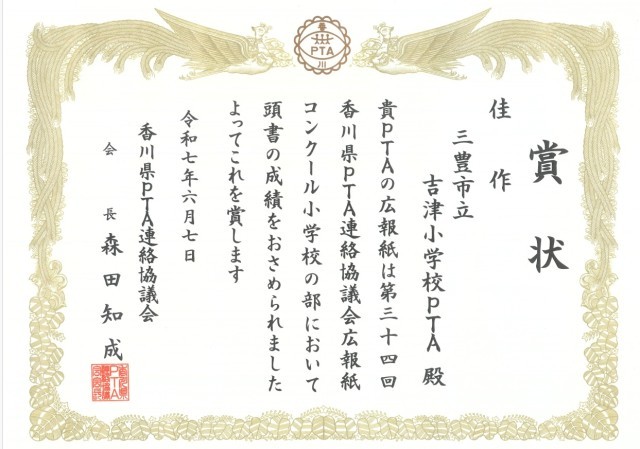 香
PTA
川
賞状
佳作
三豊市立
吉津小学校PTA 殿
貴PTAの広報紙は第三十四回
香川県PTA連絡協議会広報紙
コンクール小学校の部において
頭書の成績をおさめられました
よってこれを賞します
令和七年六月七日
香川県PTA連絡協議会
会長 森田知成